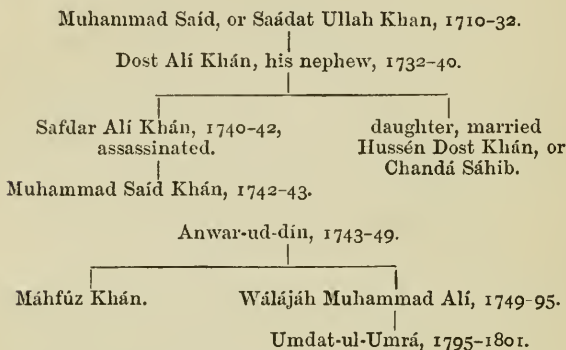 Muhammad Saíd, or Saádat Ullah Khan, 1710-32.
Dost Alí Khán, his nephew, 1732-40.
Safdar Alí Khán, 1740-42,
assassinated.
daughter, married
Hussén Dost Khán, or
Chandá Sáhib.
Muhammad Saíd Khán, 1742-43.
Anwar-ud-dín, 1743-49.
Máhfúz Khán.
Wálájáh Muhammad Alí, 1749-95.
Umdat-ul-Umrá, 1795-1801.